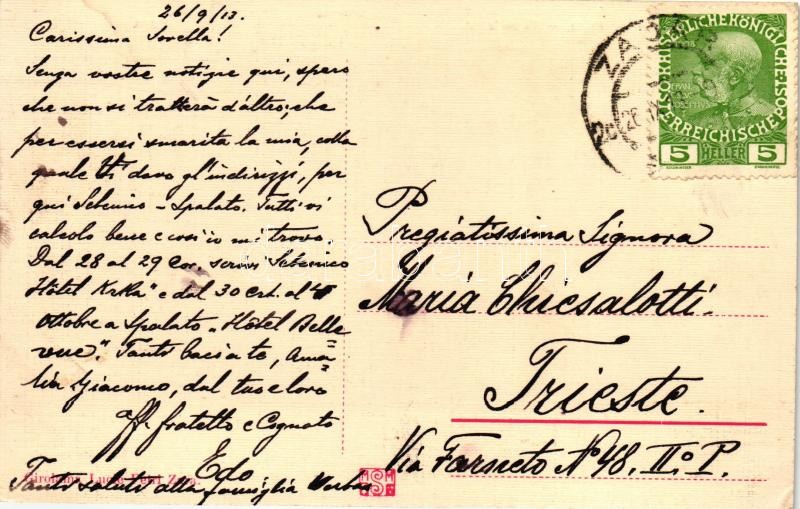 26/9/13.
Carissima Sorella!
Senza vostre notizie qui, spero
che non si tratterà d'altro, che
per essersi smarita la mia, colla
quale Vi davo gl'indirizzi, per
qui Sebenico - Spalato. Tutti vi
calcolo bene e così io mi trovo.
Dal 28 al 29 Cor. scrivi Sebenico
Hôtel Krka" e dal 30 Crt. al
ottobre a Spalato „Hôtel Belle
vue". Tanti baci a te, Ama=
lia Giacomo, dal tuo e loro
aff. fratello e Cognato
Edo
Tanti saluti alla famiglia
KAISERLICHE KÖNIGLICHE
ÖSTERREICHISCHE POST
5 HELLER 5
ZARA
Pregiatissima Signora
Maria Chiesalotti.
Trieste.
Via Farneto No 48. IIo P.